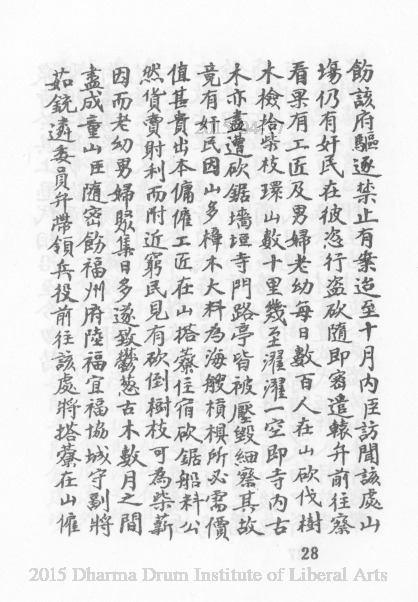 飭該府驅逐禁止有案迨至十月內臣訪聞該處山
塲仍有奸民在彼恣行盜砍隨即密遣轅弁前往察
看果有工匠及男婦老幼每日數百人在山砍伐樹
木檢拾柴枝環山數十里幾至濯濯一空即寺內古
木亦盡遭砍鋸墻垣寺門路亭皆被壓毀細察其故
竟有奸民因山多樟木大料為海艘槓椇所必需價
值甚貴出本傭僱工匠在山搭藔住宿砍鋸船料公
然貨賣財利而附近窮民見有砍倒樹枝可為柴薪
因而老幼男婦聚集日多遂致鬱葱古木數月之間
盡成童山臣隨密飭福州府陸福宜福協城守副將
茹銃遴委員弁帶領兵役前往該處將搭藔在山僱
28
2015 Dharma Drum Institute of Liberal Arts